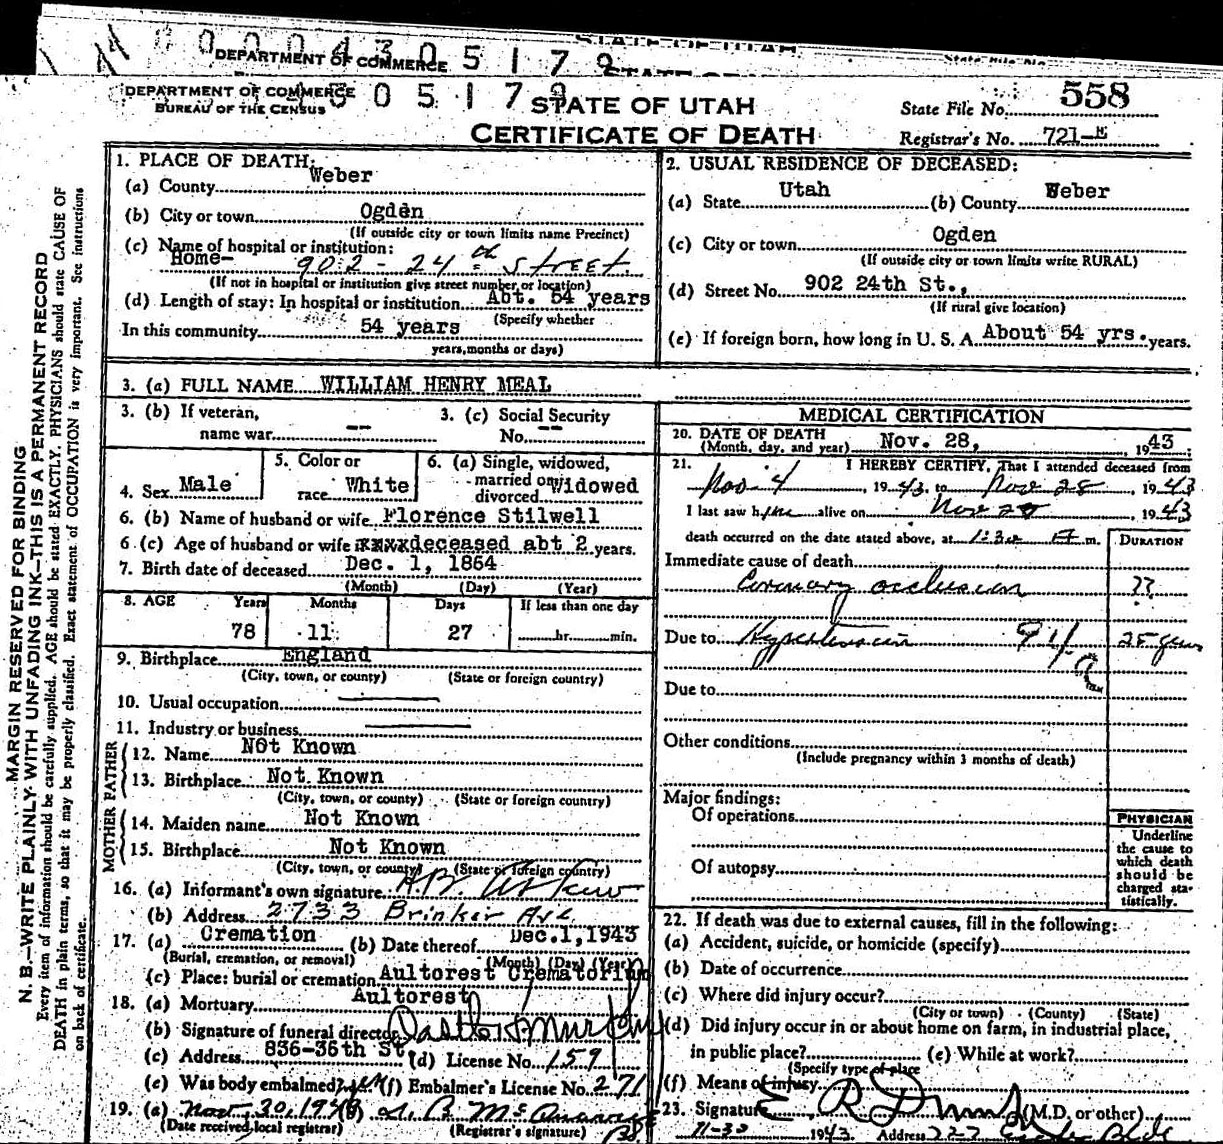 0 0 0 0 4 3 0 5 1 7 9
DEPARTMENT OF COMMERCE
STATE OF UTAH
State File No.
DEPARTMENT OF COMMERCE
BUREAU OF THE CENSUS
0 5 1 7 9
STATE OF UTAH
CERTIFICATE OF DEATH
State File No. 558
Registrar's No. 721-E
MARGIN RESERVED FOR BINDING
N. B.—WRITE PLAINLY WITH UNFADING INK—THIS IS A PERMANENT RECORD
Every item of information should be carefully supplied. AGE should be stated EXACTLY. PHYSICIANS should state CAUSE OF
DEATH in plain terms, so that it may be properly classified. Exact statement of OCCUPATION is very important. See instructions
on back of certificate.
1. PLACE OF DEATH:
(a) County Weber
(b) City or town Ogden
(If outside city or town limits name Precinct)
(c) Name of hospital or institution:
Home- 902 - 24th Street
(If not in hospital or institution give street number or location)
(d) Length of stay: In hospital or institution Abt. 54 years
(Specify whether
In this community 54 years
years, months or days)
2. USUAL RESIDENCE OF DECEASED:
(a) State Utah (b) County Weber
(c) City or town Ogden
(If outside city or town limits write RURAL)
(d) Street No. 902 24th St.,
(If rural give location)
(e) If foreign born, how long in U. S. A. About 54 yrs. years.
3. (a) FULL NAME WILLIAM HENRY MEAL
3. (b) If veteran, name war --
3. (c) Social Security No. --
4. Sex Male
5. Color or race White
6. (a) Single, widowed, married or divorced Widowed
6. (b) Name of husband or wife Florence Stilwell
6. (c) Age of husband or wife xxxx deceased abt 2 years.
7. Birth date of deceased Dec. 1, 1864
(Month) (Day) (Year)
8. AGE Years Months Days If less than one day
78 11 27 hr. min.
9. Birthplace England
(City, town, or county) (State or foreign country)
10. Usual occupation
11. Industry or business
FATHER
12. Name Not Known
13. Birthplace Not Known
(City, town, or county) (State or foreign country)
MOTHER
14. Maiden name Not Known
15. Birthplace Not Known
(City, town, or county) (State or foreign country)
16. (a) Informant's own signature
(b) Address 2733 Brinker Ave
17. (a) Cremation (b) Date thereof Dec.1,1943
(Burial, cremation, or removal) (Month) (Day) (Year)
(c) Place: burial or cremation Aultorest Crematorium
18. (a) Mortuary Aultorest
(b) Signature of funeral director
(c) Address 836-36th St. (d) License No. 159
(e) Was body embalmed? (f) Embalmer's License No. 271
19. (a) Nov. 30, 1943
(Date received local registrar) (Registrar's signature)
MEDICAL CERTIFICATION
20. DATE OF DEATH
(Month, day, and year) Nov. 28, 1943
21. I HEREBY CERTIFY, That I attended deceased from
Nov. 4, 1943, to Nov 28, 1943
I last saw him alive on Nov 28, 1943
death occurred on the date stated above, at 1:30 A m.
DURATION
Immediate cause of death
Coronary occlusion ??
Due to Hypertension
Due to
Other conditions
(Include pregnancy within 3 months of death)
Major findings:
Of operations
Of autopsy
PHYSICIAN
Underline
the cause to
which death
should be
charged sta-
tistically.
22. If death was due to external causes, fill in the following:
(a) Accident, suicide, or homicide (specify)
(b) Date of occurrence
(c) Where did injury occur?
(City or town) (County) (State)
(d) Did injury occur in or about home on farm, in industrial place,
in public place? (e) While at work?
(Specify type of place
(f) Means of injury
23. Signature (M.D. or other)
11-30 1943. Address 227